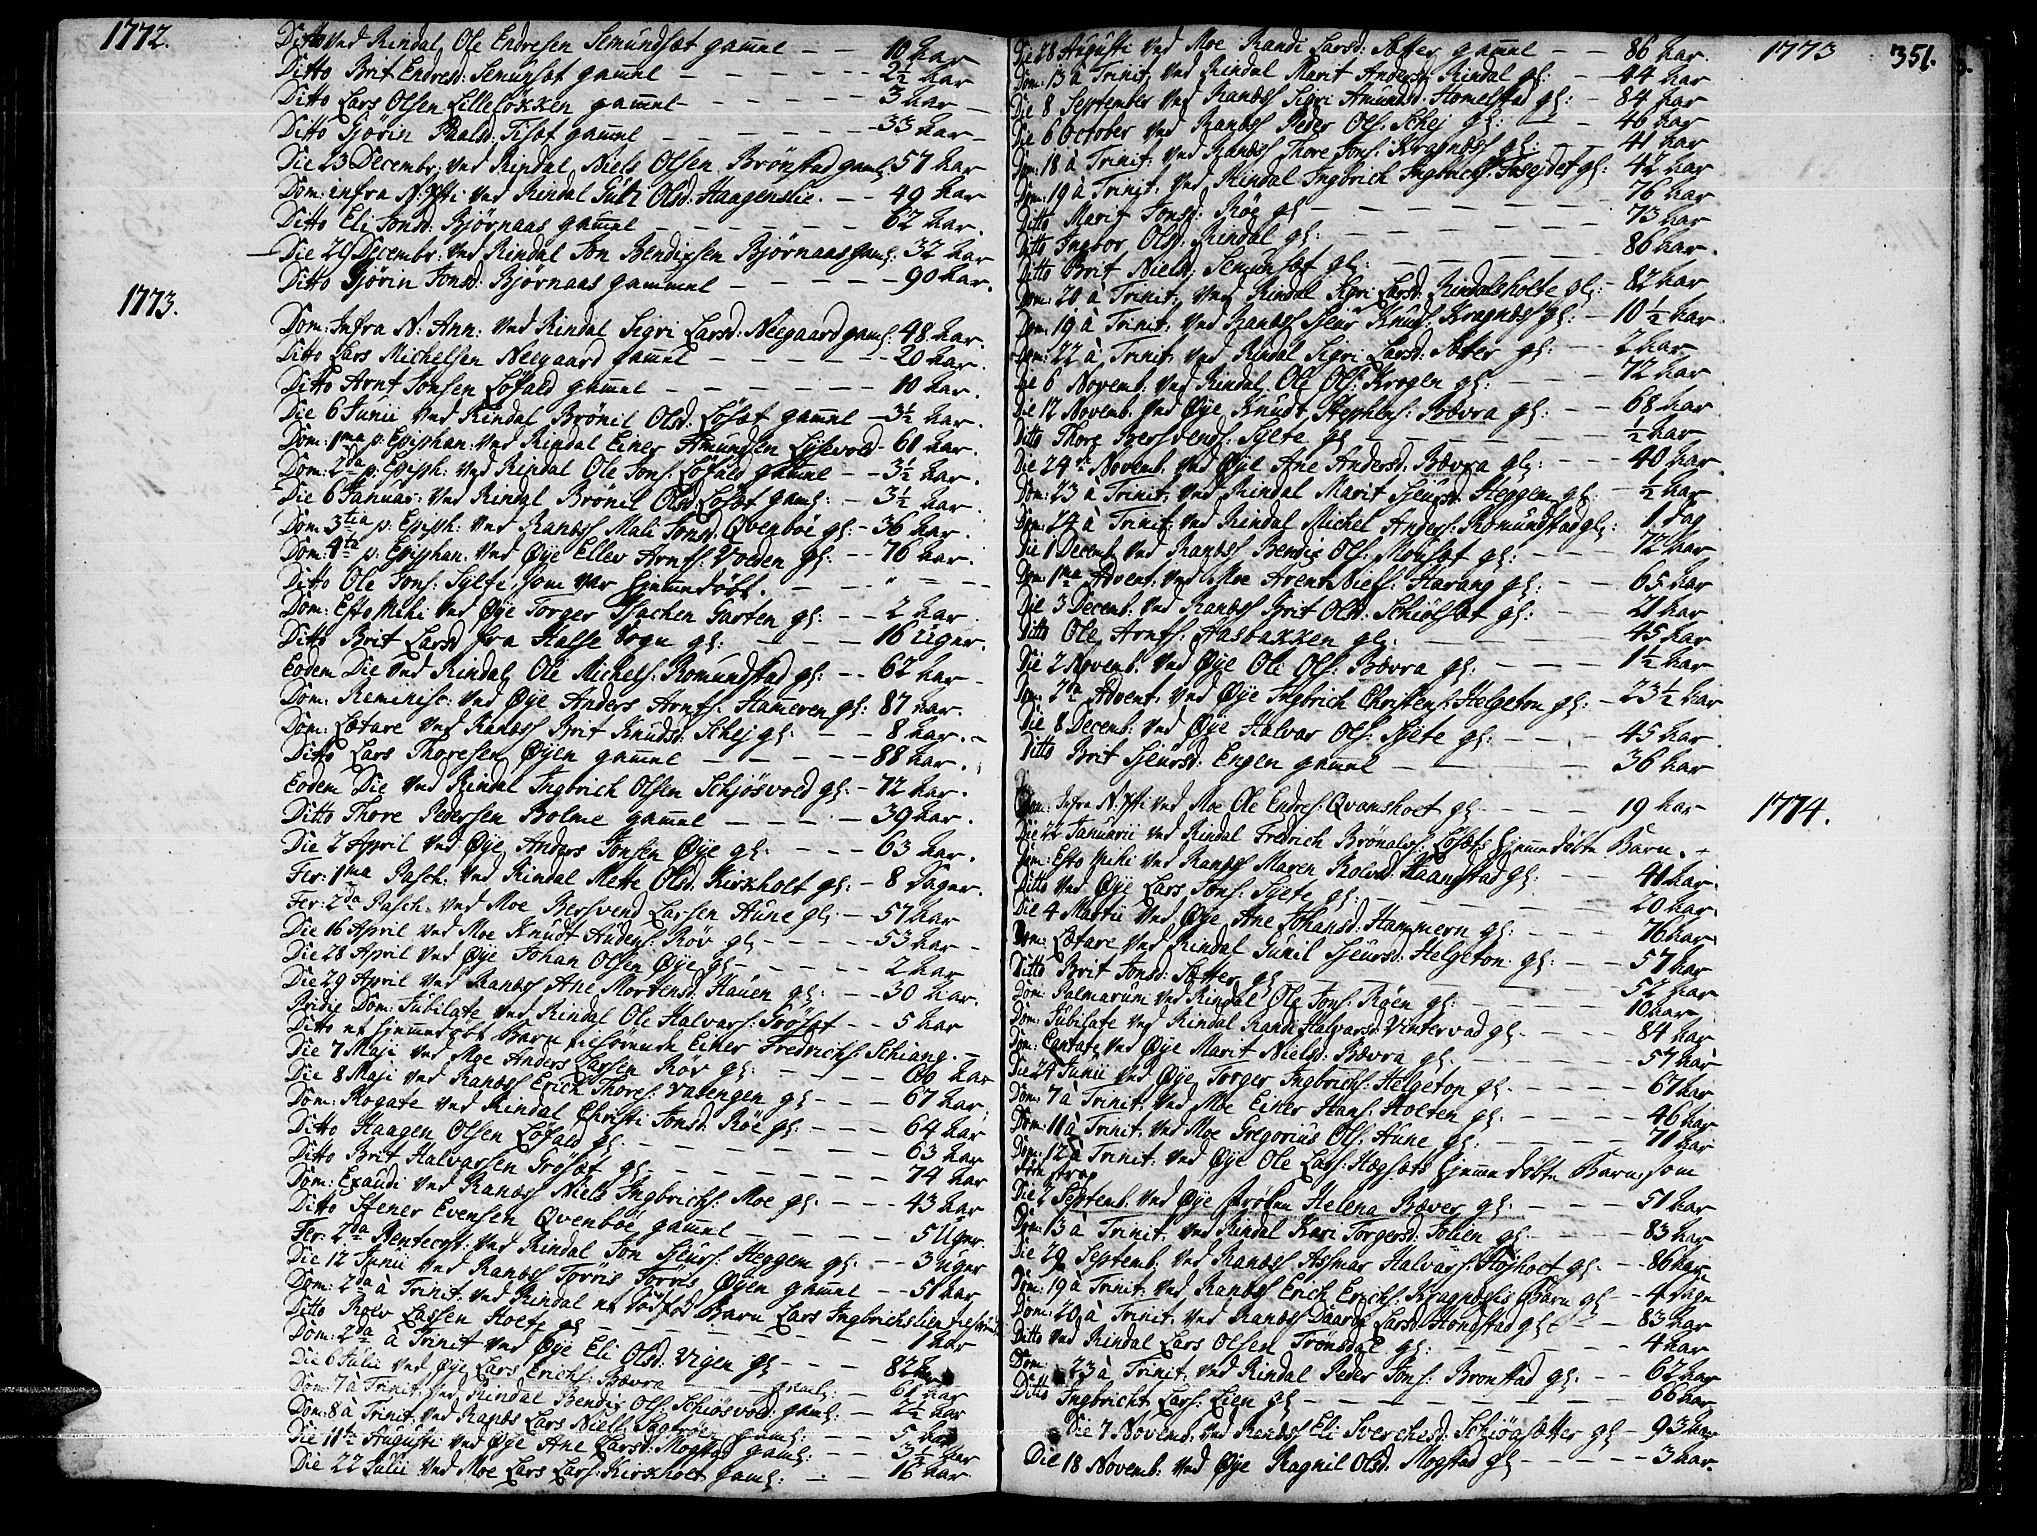 1772.
Ditto ved Rindal, Ole Endresen Semundsæt gammel — — 10 aar
Ditto Brit Endresd: Semunsæt gammel — — 2½ aar
Ditto Lars Olsen Lilleløkken gammel — — 3 aar
Ditto Sjørin Paalsd: Tiset gammel — — 33 aar
Die 23 Decembr: ved Rindal Niels Olsen Brönstad gaml: 57 aar
Dom: infra N: Xsti ved Rindal Olsd: Haagenslie. — — 49 aar
Ditto Eli Jonsd: Bjørnaas gammel — — 62 aar.
Die 29 Decembr: ved Rindal Jon Bendixsen Bjørnaas gaml: 32 aar
Ditto Sjørin Jonsd: Bjørnaas gammel — — 90 aar.
1773.
Dom: Infra N: Ann: ved Rindal Sigri Larsd: Neegaard gaml: 48 aar.
Ditto Lars Michelsen Neegaard gammel — — 20 aar.
Ditto Arnt Jonsen Løfald gammel — — 10 aar.
Die 6 Junii ved Rindal Brönil Olsd: Løsæt gammel — 3½ aar.
Dom: 1ma p: Epiphan: ved Rindal Einer Amundsen Lysevold 61 aar.
Dom: 2da p: Epiph: ved Rindal Ole Jons: Løfald gammel — 3½ aar.
Die 6 Januar: ved Rindal Brönil Olsd: Løsæt gaml: — 3½ aar.
Dom: 3tia p: Epiph: ved Ranæs Mali Jonsd: Qvenboe gl: — 36 aar.
Dom: 4ta p: Epiphan: ved Øye Ellev Arnts: Voeden gl: — 76 aar.
Ditto Ole Jons: Sylte, som var hjemmedøbt.
Dom: Esto Mihi ved Øye Torger Garten gl: — — 2 aar
Ditto Brit Larsd fra Halse Sogn gl: — — 16 Uger.
Eodem Die ved Rindal, Ole Michels: Romundstad gl: — 62 aar
Dom: Reminisc: ved Øye Anders Arnts: Hameren gl: 87 aar.
Dom: Lætare ved Ranæs Brit Knudsd: Schej gl: — — 8 aar.
Ditto Lars Thoresen Øyen gammel — — 88 aar.
Eodem Die ved Rindal Ingbrich Olsen Schjøsvold gl: — 72 aar.
Ditto Thore Pedersen Bolme gammel — — 39 aar.
Die 2 April ved Øye Anders Jonsen Øye gl: — — 63 aar.
Fer: 1ma Pasch: ved Rindal Mette Olsd: Kirkholt gl: — 8 Dager.
Fer: 2da Pasch: ved Moe Bersvend Larsen Aune gl: — 57 aar
Die 16 April ved Moe Knudt Audens: Röv gl — — 53 aar
Die 28 April ved Øye Johan Olsen Øye gl — — 2 aar
Die 29 April ved Ranæs Ane Mortensd: Hauen gl: — 30 aar.
Pridie Dom: Jubilate ved Rindal Ole Halvars: Grösæt — 5 aar
Ditto et hjemmedøbt Barn Einer Fredrichs: Schiang.
Die 7 Maji ved Moe Anders Larsen Röv gl: — — 60 aar
Die 8 Maji ved Ranæs Erich Thores: Vasengen gl — — 67 aar
Dom: Rogate ved Rindal Christi Jonsd: Röe gl: — — 64 aar
Ditto Haagen Olsen Löfald gl: — — 63 aar
Ditto Brit Halvarsen Grösæt gl — — 74 aar
Dom: Exaudi ved Ranæs Niels Ingbrichs: Moe gl: — — 43 aar
Ditto Stener Evensen Qvenboe gammel — — 5 Uger.
Fer: 2da Pentecost: ved Rindal Jon Sjeurs: Heggem gl: — 3 Uger
Die 12 Junii ved Ranæs Torris Torris: Øyen gammel — 51 aar
Dom: 2da à Trinit: ved Rindal et dödfød Barn Lars Ingbrichs: Lien
Ditto Roev Larsen Hoete gl — — 1 aar
Dom: 2da à Trinit ved Øye Eli Olsd: Vigen gl — — 82 aar
Die 6 Julii ved Øye Lars Erichs: Bævra — gaml: — 61 aar
Dom: 7 à Trinit: ved Rindal Bendix Ols: Schiösvold gaml: — 2½ aar
Dom: 8 à Trinit: ved Ranæs Lars Niels: gaml: — 5 aar
Die 11te Augusti ved Øye Ane Larsd: Mogstad gaml: — 3½ aar
Die 22 Julii ved Moe Lars Lars: Kirkholt gaml: — 16 aar
1773 351.
Die 28 Augusti ved Moe Randi Larsd: Sæter gammel — — 86 aar
Dom: 13 à Trinit: ved Rindal Marit Andersd: Rindal gl: — 44 aar
Die 8 September ved Ranæs Sigri Amundsd: Homelstad gl: — 84 aar
Die 6 October ved Ranæs Peder Ols: Schej gl: — — 46 aar
Dom: 18 à Trinit: ved Ranæs Thore Jons: Kragnæs gl: — 41 aar
Dom: 19 à Trinit: ved Rindal Ingbrich Ingbrichs: gl: 42 aar
Ditto Marit Jonsd: Röe gl — — 76 aar
Ditto Ingbor Olsd: Rindal gl: — — 73 aar
Ditto Brit Nielsd: Semunsæt gl: — — 86 aar.
Dom: 20 à Trinit: ved Rindal Sigri Larsd: Rindalsholte gl: — 82 aar
Dom: 19 à Trinit: ved Ranæs Sjeur Knuds: Kragnæs gl: — 10½ aar
Dom: 22 à Trinit: ved Rindal Sigri Larsd: Sæter gl: — 2 aar
Die 6 Novemb: ved Rindal Ole Ols: Krogen gl: — — 72 aar
Die 12 Novemb: ved Øye Knudt Stephens: Bævra gl: — — 68 aar
Ditto Thore Bersvends: Sylte gl — — ½ aar
Die 24de Novemb: ved Øye Ane Andersd: Bævra gl: — — 40 aar
Dom: 23 à Trinit: ved Rindal Marit Sjeursd: Heggem gl: — ½ aar
Dom: 24 à Trinit: ved Rindal Michel Anders: Romundstad gl: — 1 dag
Die 1 Decemb: ved Ranæs Bendix Ols: Mousæt gl: — — 72 aar
Dom: 1ma Advent: ved Moe Arent Niels: Harang gl: — — 65 aar
Die 3 Decemb: ved Ranæs Brit Olsd: Schiølsæt gl: — — 21 aar
Ditto Ole Arnts: Aasbakken gl: — — 45 aar
Die 2 Novemb: ved Øye Ole Ols: Bævra gl: — — 1½ aar
Dom: 2da Advent: ved Øye Ingbrich Christens: Helgeton gl: — 23½ aar
Die 8 Decemb: ved Øye Halvar Ols: Sylte gl: — — 45 aar
Ditto Brit Sjeursd: Engen gammel — — 36 aar
1774.
Dom: Infra N: Xsti ved Moe Ole Endres: Qvamshoet gl — — 19 aar
Die 22 Januarii ved Rindal Fredrich Brönals: Løsæts hjemmedøbte Barn.
Dom: Esto Mihi ved Ranæs Maren Roevsd: Kaangstad gl: — 41 aar.
Ditto ved Øye Lars Jons: Sylte gl: — — 20 aar
Die 4 Martii ved Øye Ane Johansd: Hammern gl: — — 76 aar
Dom: Lætare ved Rindal Gunil Sjeursd: Helgeton gl: — — 57 aar
Ditto Brit Jonsd: Sætter gl — — 52 aar
Dom: Palmarum ved Rindal Ole Jons: Röen gl: — — 10 aar
Dom: Jubilate ved Rindal Randi Halvarsd: Vintervad gl: — — 84 aar
Dom: Cantate ved Øye Marit Nielsd: Bævra gl: — — 57 aar
Die 24 Junii ved Øye Torger Ingbrichs: Helgeton gl: — — 67 aar
Dom: 7 à Trinit: ved Moe Einer Hans: Holten gl: — — 46 aar
Dom: 11 à Trinit: ved Moe Gregorius Ols: Aune gl: — — 71 aar
Dom: 12 à Trinit: ved Øye Ole Lars: Hægsæts hjemmedøbte Barn, som
døde strax
Die 2 Septemb: ved Øye Helena Bæver gl: — — 51 aar
Dom: 13 à Trinit: ved Rindal Kari Torgersd: Folien gl: — — 83 aar
Die 29 Septemb: ved Ranæs Assmar Halvars: Höjhoet gl: — 86 aar
Dom: 19 à Trinit: ved Ranæs Erich Erichs: Kragnæsis Barn gl — 4 Dage
Dom: 20 à Trinit: ved Ranæs Daarde Larsd: Hondstad gl: — 83 aar
Ditto ved Rindal Lars Olsen Trönsdal gl: — — 4 aar
Dom: 23 à Trinit: ved Rindal Peder Jons: Bronstad gl: — — 62 aar
Ditto Ingbricht Lars: Lien gl — — 66 aar
Die 7 Novemb: ved Ranæs Eli Sverchesd: Schiöasætter gl — 93 aar
Die 18 Novemb: ved Øye Ragnil Olsd: Mogstad gl — — 3 aar.